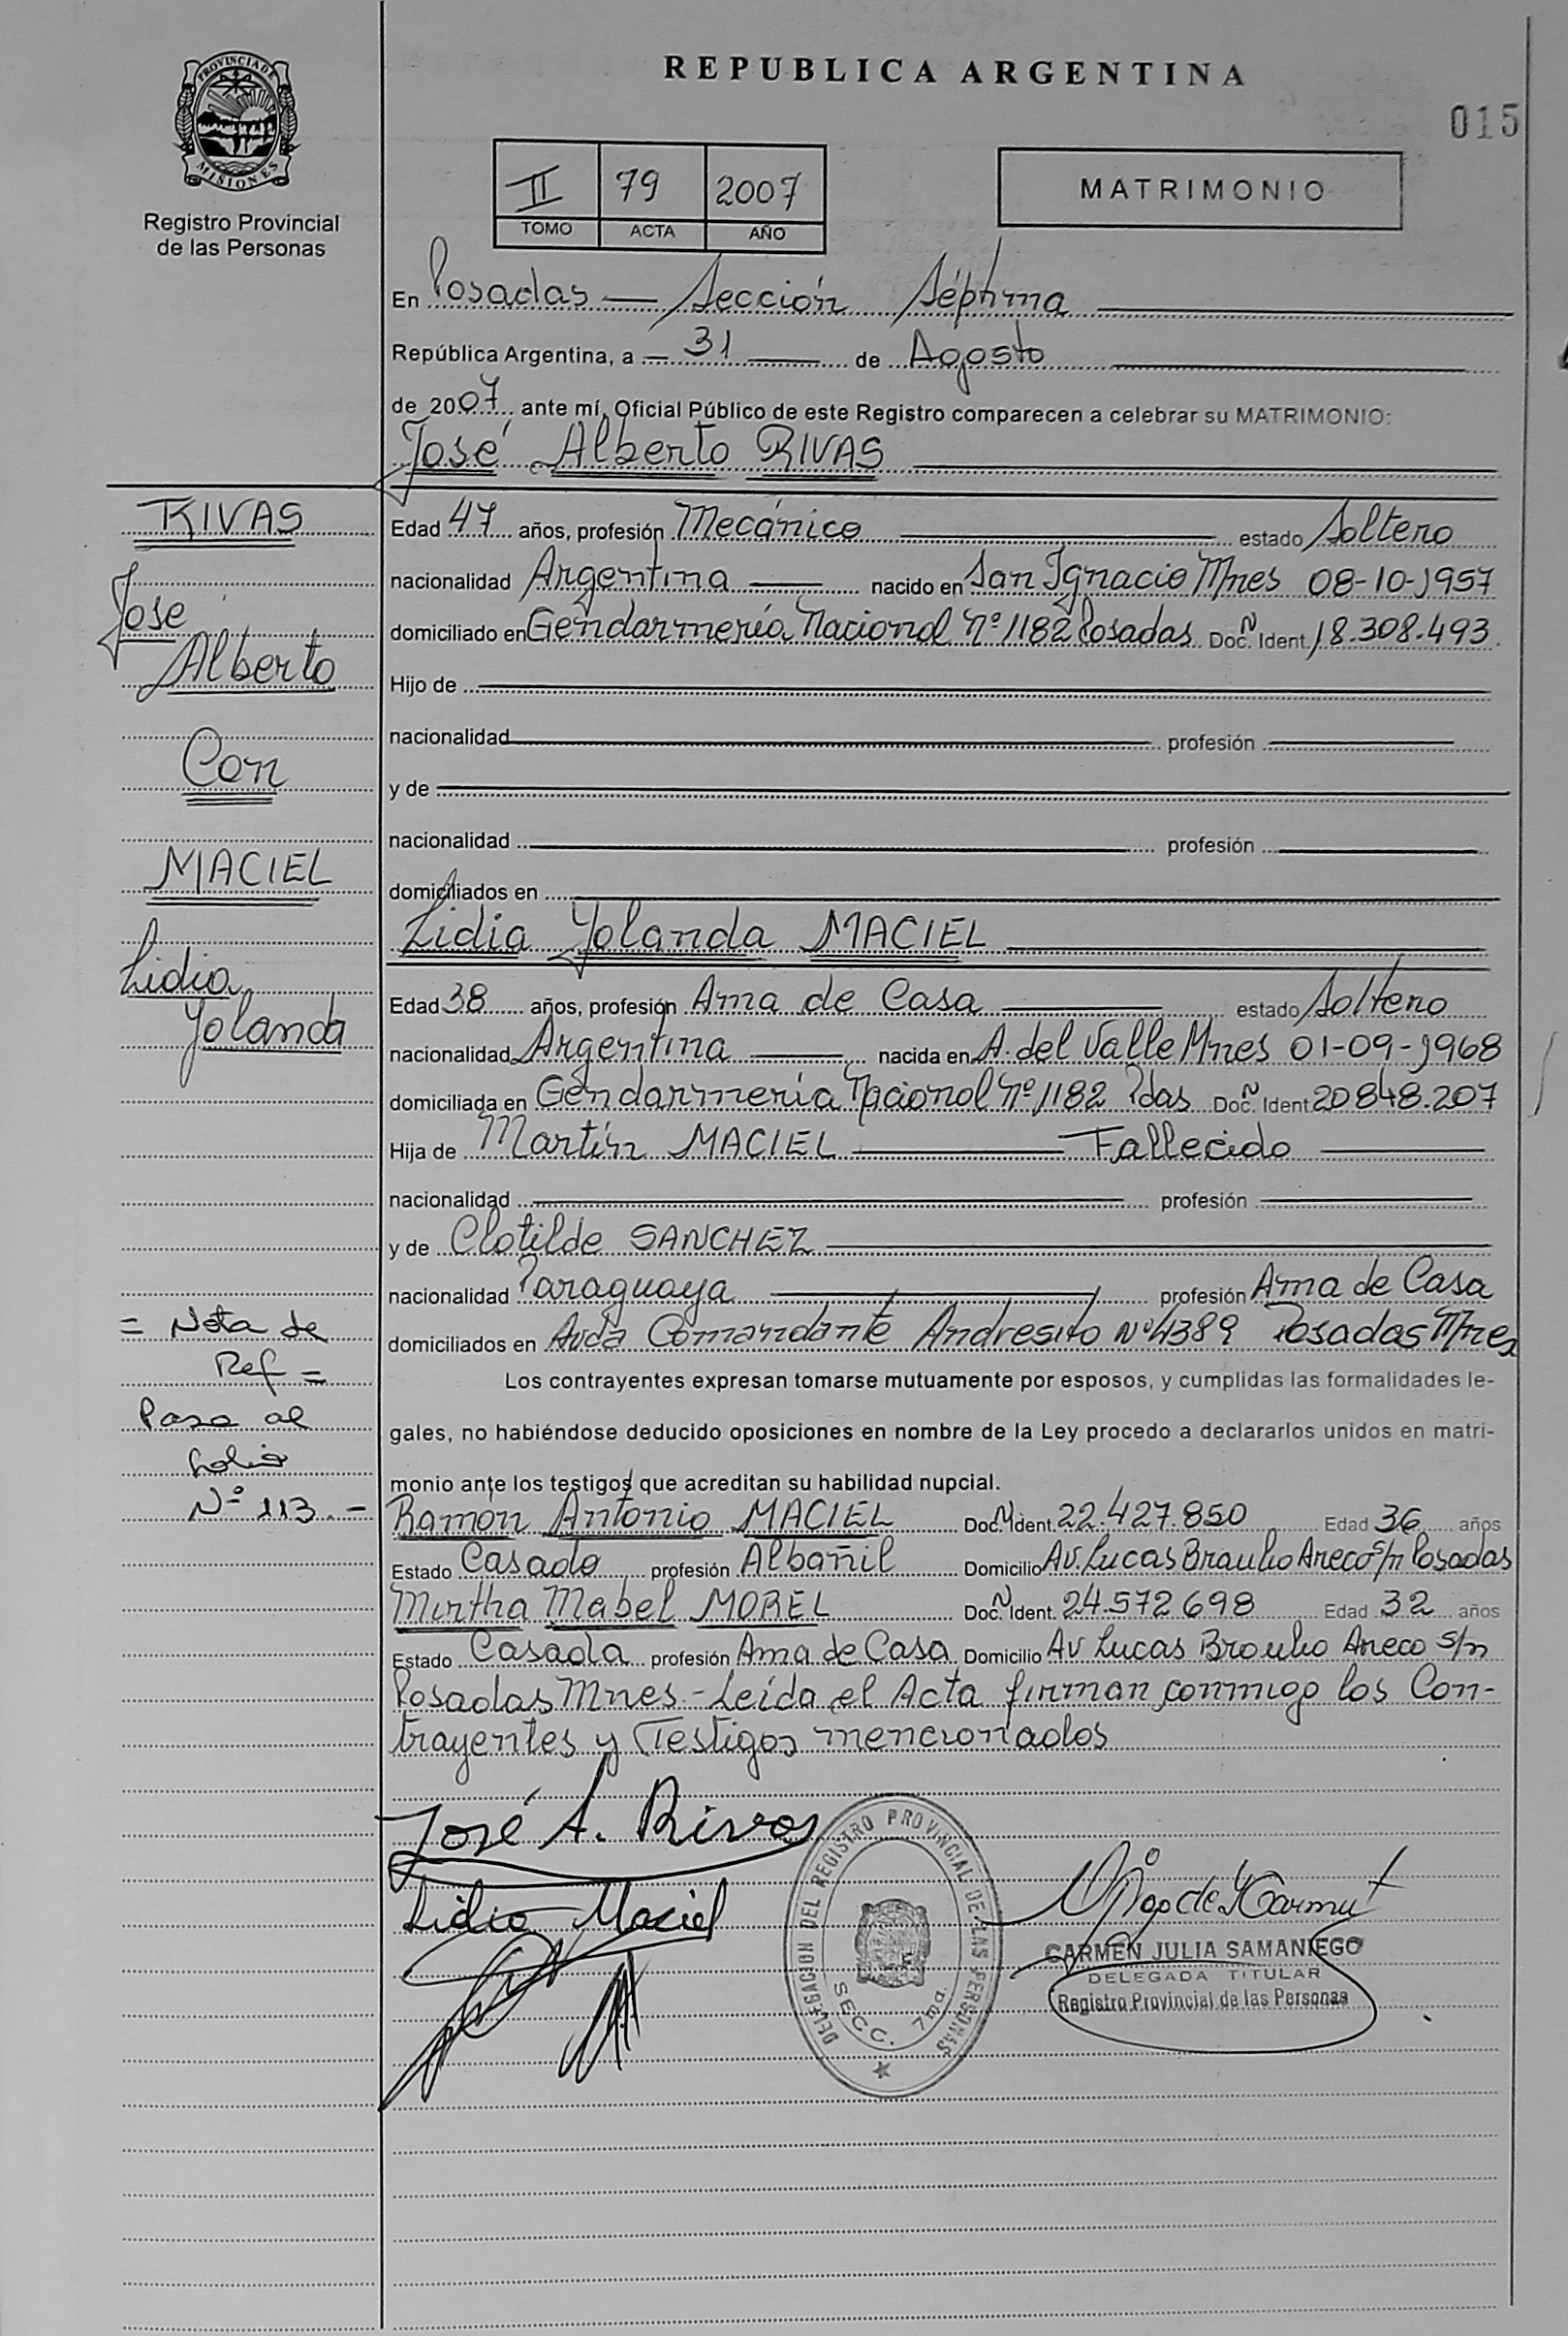 REPUBLICA ARGENTINA
015
PROVINCIA DE
MISIONES
Registro Provincial
de las Personas
II 79 2007
TOMO ACTA AÑO
MATRIMONIO
En Posadas — Sección Séptima
República Argentina, a 31 de Agosto
de 2007 ante mí, Oficial Público de este Registro comparecen a celebrar su MATRIMONIO:
José Alberto RIVAS
RIVAS
Jose
Alberto
Con
MACIEL
Lidia
Yolanda
Edad 47 años, profesión Mecánico estado Soltero
nacionalidad Argentina nacido en San Ignacio Mnes 08-10-1957
domiciliado en Gendarmería Nacional Nº 1182 Posadas Doc. N Ident. 18.308.493
Hijo de
nacionalidad profesión
y de
nacionalidad profesión
domiciliados en
Lidia Yolanda MACIEL
Edad 38 años, profesión Ama de Casa estado Soltero
nacionalidad Argentina nacida en A. del Valle Mnes 01-09-1968
domiciliada en Gendarmería Nacional Nº 1182 Pdas Doc. N Ident 20848.207
Hija de Martín MACIEL — Fallecido
nacionalidad profesión
y de Clotilde SANCHEZ
nacionalidad Paraguaya profesión Ama de Casa
domiciliados en Avda Comandante Andresito Nº 4389 Posadas Mnes
= Nota de
Ref =
Pasa al
folio
Nº 113.-
Los contrayentes expresan tomarse mutuamente por esposos, y cumplidas las formalidades le-
gales, no habiéndose deducido oposiciones en nombre de la Ley procedo a declararlos unidos en matri-
monio ante los testigos que acreditan su habilidad nupcial.
Ramón Antonio MACIEL Doc. N Ident. 22.427.850 Edad 36 años
Estado Casado profesión Albañil Domicilio Av. Lucas Braulio Areco s/n Posadas
Mirtha Mabel MOREL Doc. N Ident. 24.572698 Edad 32 años
Estado Casada profesión Ama de Casa Domicilio Av Lucas Braulio Areco s/n
Posadas Mnes - Leída el Acta firman conmigo los Con-
trayentes y Testigos mencionados
José A. Rivas
Lidia Maciel
DELEGACION DEL REGISTRO PROVINCIAL DE LAS PERSONAS
SECC. 7ma.
CARMEN JULIA SAMANIEGO
DELEGADA TITULAR
Registro Provincial de las Personas